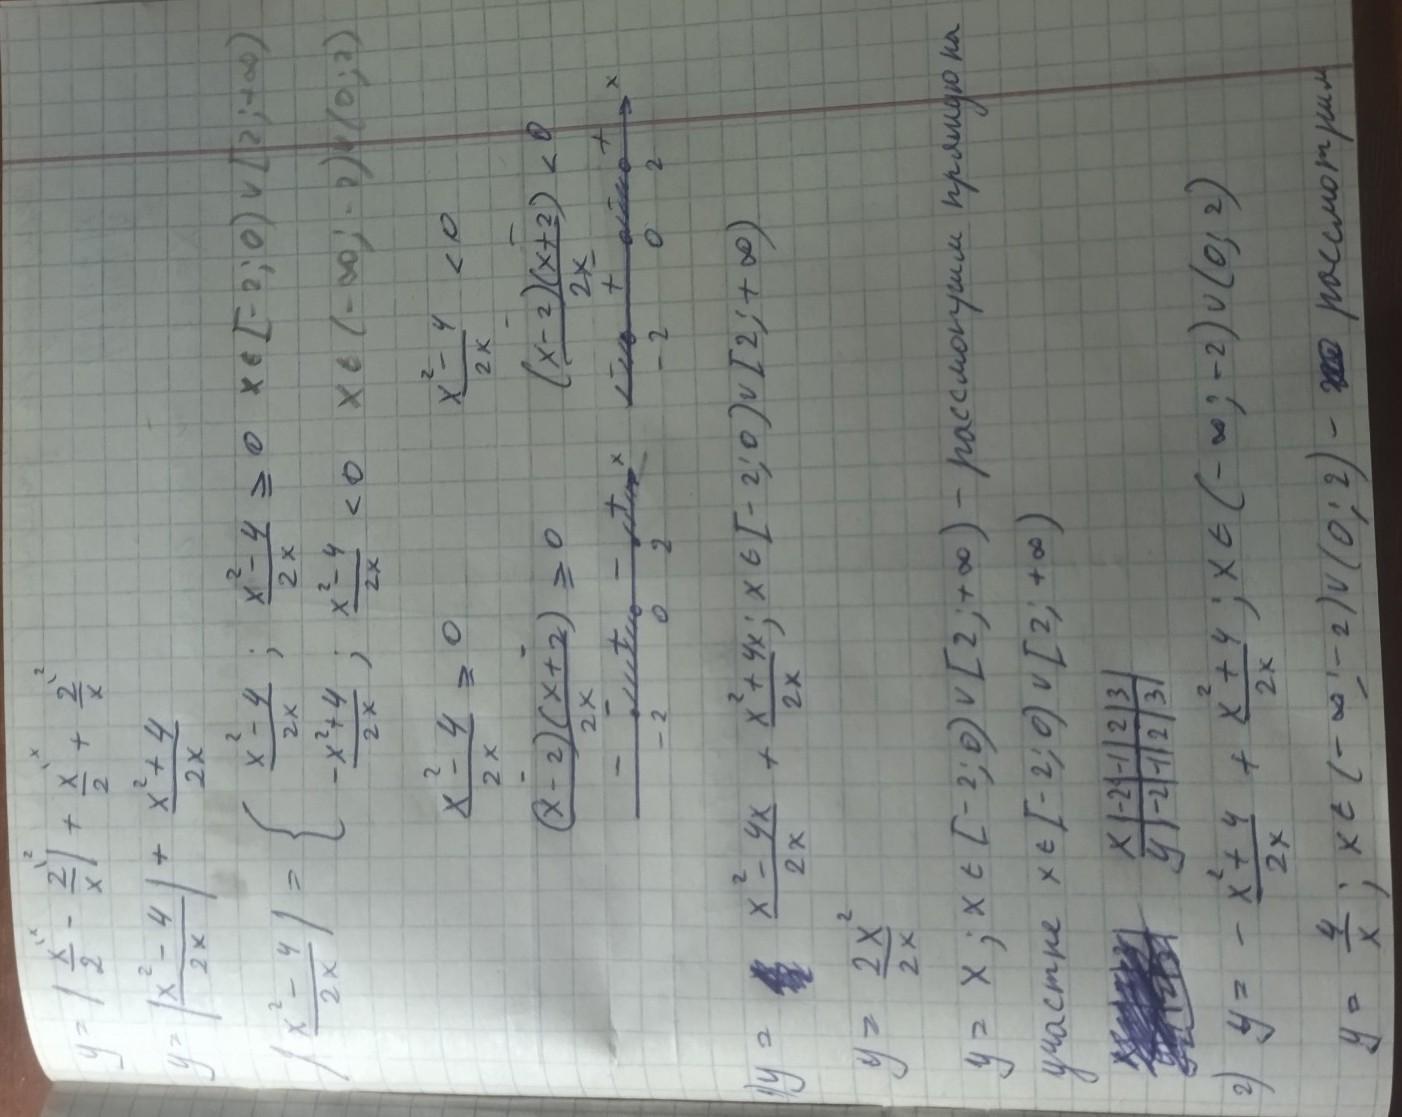 y = |x/2 - 2/x| + x/2 + 2/x
y = |(x² - 4)/2x| + (x² + 4)/2x
|(x² - 4)/2x| = { (x² - 4)/2x ; (x² - 4)/2x ≥ 0 x ∈ [-2; 0) ∪ [2; +∞)
(-x² + 4)/2x ; (x² - 4)/2x < 0 x ∈ (-∞; -2) ∪ (0; 2)
(x² - 4)/2x ≥ 0 (x² - 4)/2x < 0
(x - 2)(x + 2)/2x ≥ 0 (x - 2)(x + 2)/2x < 0
- + - + x - + - + x
-2 0 2 -2 0 2
1) y = (x² - 4x)/2x + (x² + 4x)/2x ; x ∈ [-2; 0) ∪ [2; +∞)
y = 2x²/2x
y = x ; x ∈ [-2; 0) ∪ [2; +∞) - рассмотрим прямую на
участке x ∈ [-2; 0) ∪ [2; +∞)
x | -2 | -1 | 2 | 3 |
y | -2 | -1 | 2 | 3 |
2) y = - (x² + 4)/2x + (x² + 4)/2x ; x ∈ (-∞; -2) ∪ (0; 2)
y = 4/x ; x ∈ (-∞; -2) ∪ (0; 2) - рассмотрим